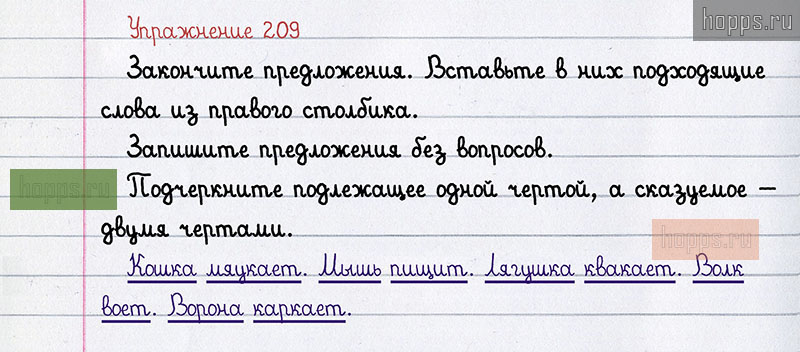 hopps.ru
Упражнение 209
Закончите предложения. Вставьте в них подходящие
слова из правого столбика.
Запишите предложения без вопросов.
hopps.ru
Подчеркните подлежащее одной чертой, а сказуемое —
двумя чертами.
hopps.ru
Кошка мяукает. Мышь пищит. Лягушка квакает. Волк
воет. Ворона каркает.